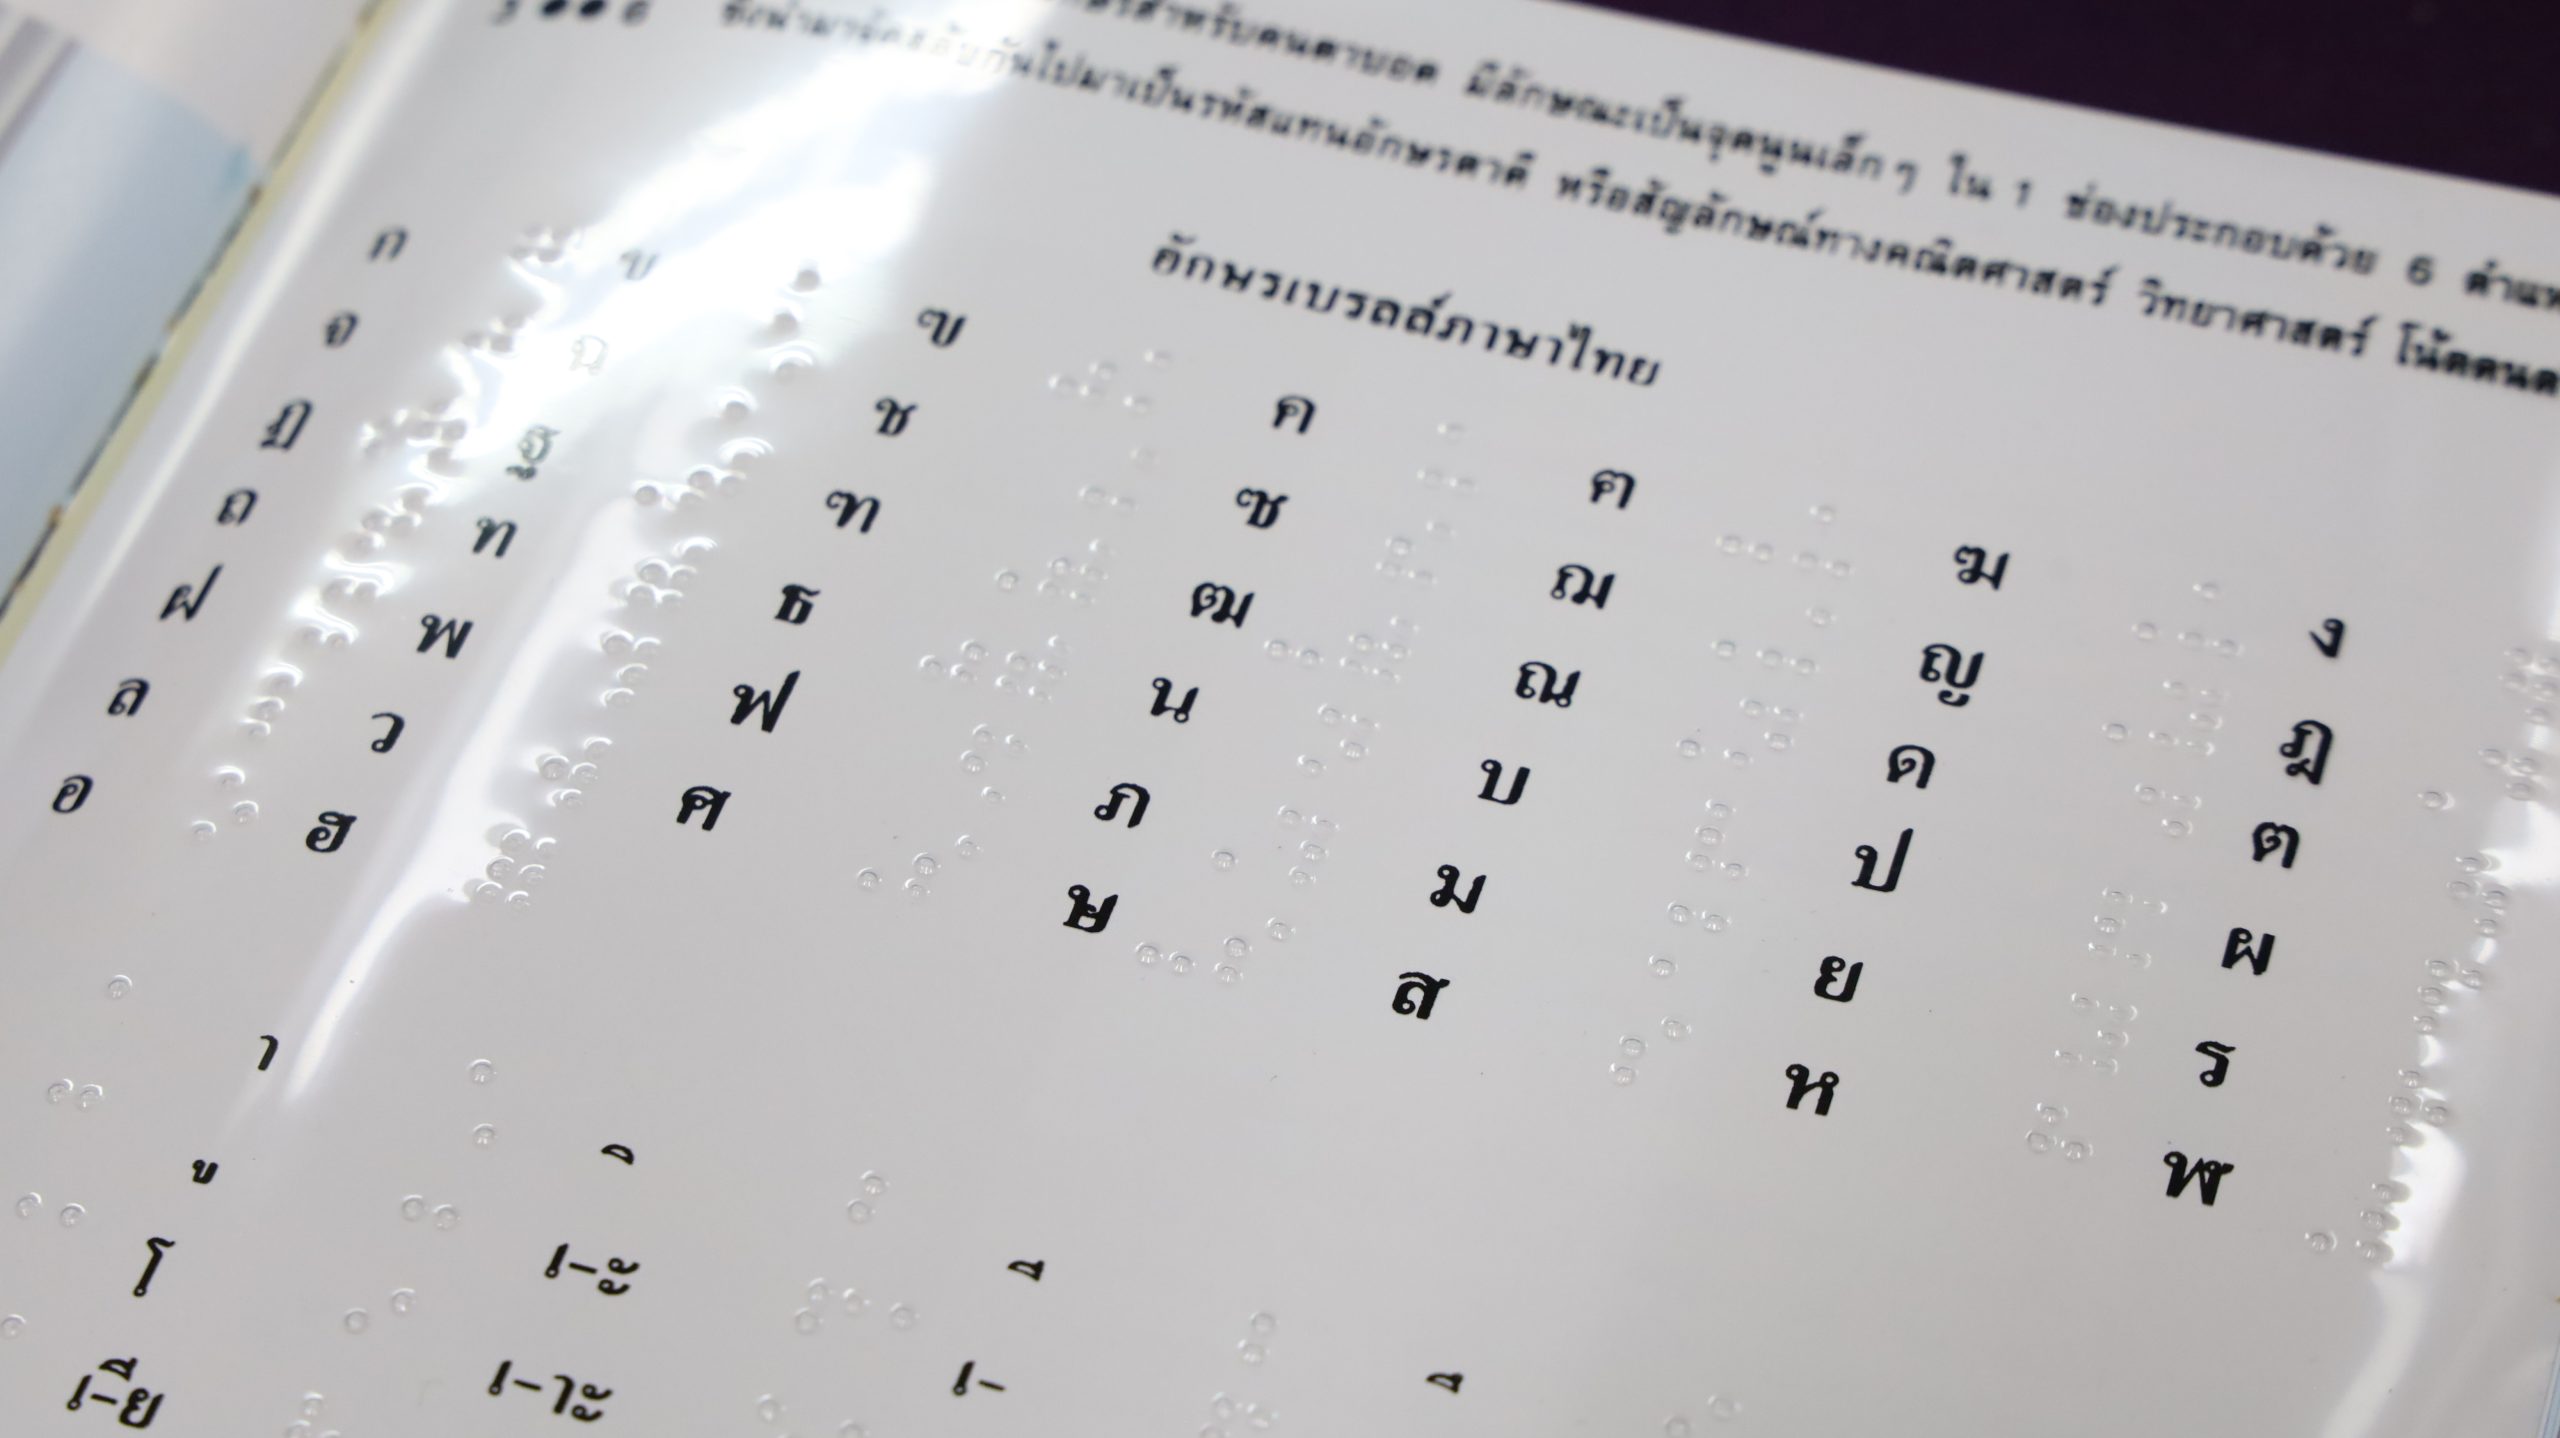 สำหรับคนตาบอด มีลักษณะเป็นจุดนูนเล็กๆ ใน 1 ช่องประกอบด้วย 6
ซึ่งนำมาจัดสลับกันไปมาเป็นรหัสแทนอักษรตาดี หรือสัญลักษณ์ทางคณิตศาสตร์ วิทยาศาสตร์
อักษรเบรลล์ภาษาไทย
ก ข ฃ ค ฅ ฆ ง
จ ฉ ช ซ ฌ ญ ฎ
ฏ ฐ ฑ ฒ ณ ด ต
ถ ท ธ น บ ป ผ
ฝ พ ฟ ภ ม ย ร
ล ว ศ ษ ส ห ฬ
อ ฮ
า ิ ี ึ
ู เ-ะ เ-
โ เ-าะ
เ-ีย